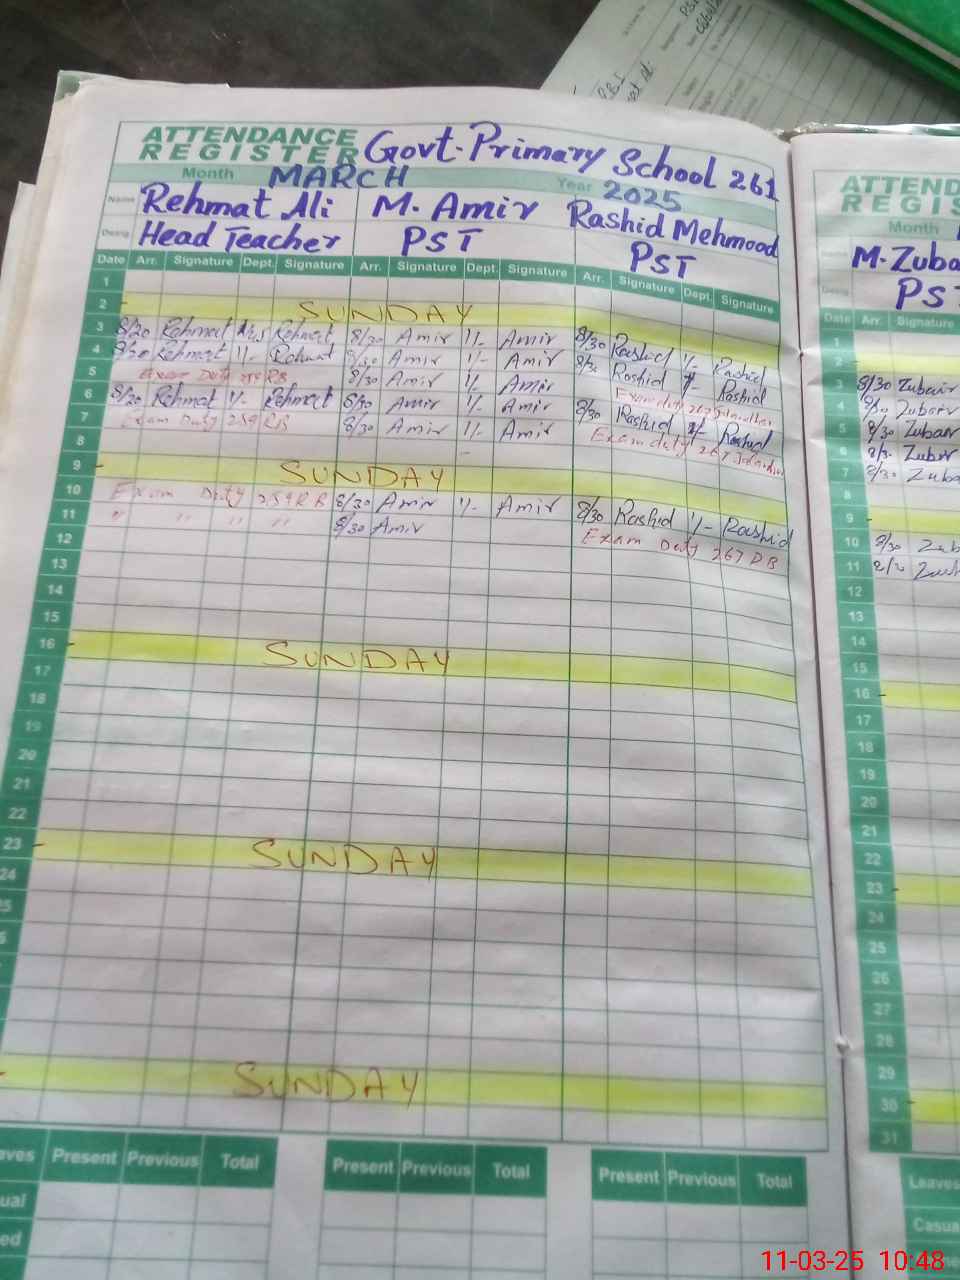 ATTENDANCE
REGISTER
Govt. Primary School 261
Month MARCH Year 2025
Name Rehmat Ali M. Amir Rashid Mehmood
Desig Head Teacher PST PST
Date Arr. Signature Dept. Signature Arr. Signature Dept. Signature Arr. Signature Dept. Signature
1
2 SUNDAY
3 8/20 Rehmat Rehmat 8/30 Amir 1/- Amir 8/30 Rashid 1/- Rashid
4 8/20 Rehmat 1/- Rehmat 8/30 Amir 1/- Amir 8/30 Rashid 1/- Rashid
5 Exam Duty 259 RB 8/30 Amir 1/- Amir Exam duty 267
6 8/20 Rehmat 1/- Rehmat 8/30 Amir 1/- Amir 8/30 Rashid 1/- Rashid
7 Exam Duty 259 RB 8/30 Amir 1/- Amir Exam duty 267
8
9 SUNDAY
10 Exam Duty 259 RB 8/30 Amir 1/- Amir 8/30 Rashid 1/- Rashid
11 " " " " 8/30 Amir Exam Duty 267 RB
12
13
14
15
16 SUNDAY
17
18
19
20
21
22
23 SUNDAY
24
SUNDAY
Present Previous Total Present Previous Total Present Previous Total
ATTEND
REGIS
Month
M. Zuba
PST
Date Arr. Signature
1
2
3 8/30 Zubair
4 Zubair
5 8/30 Zubair
6 Zubair
7 8/30 Zuba
8
9
10 8/30 Zub
11
12
13
14
15
16
17
18
19
20
21
22
23
24
25
26
27
28
29
30
31
Leaves
Casua
11-03-25 10:48